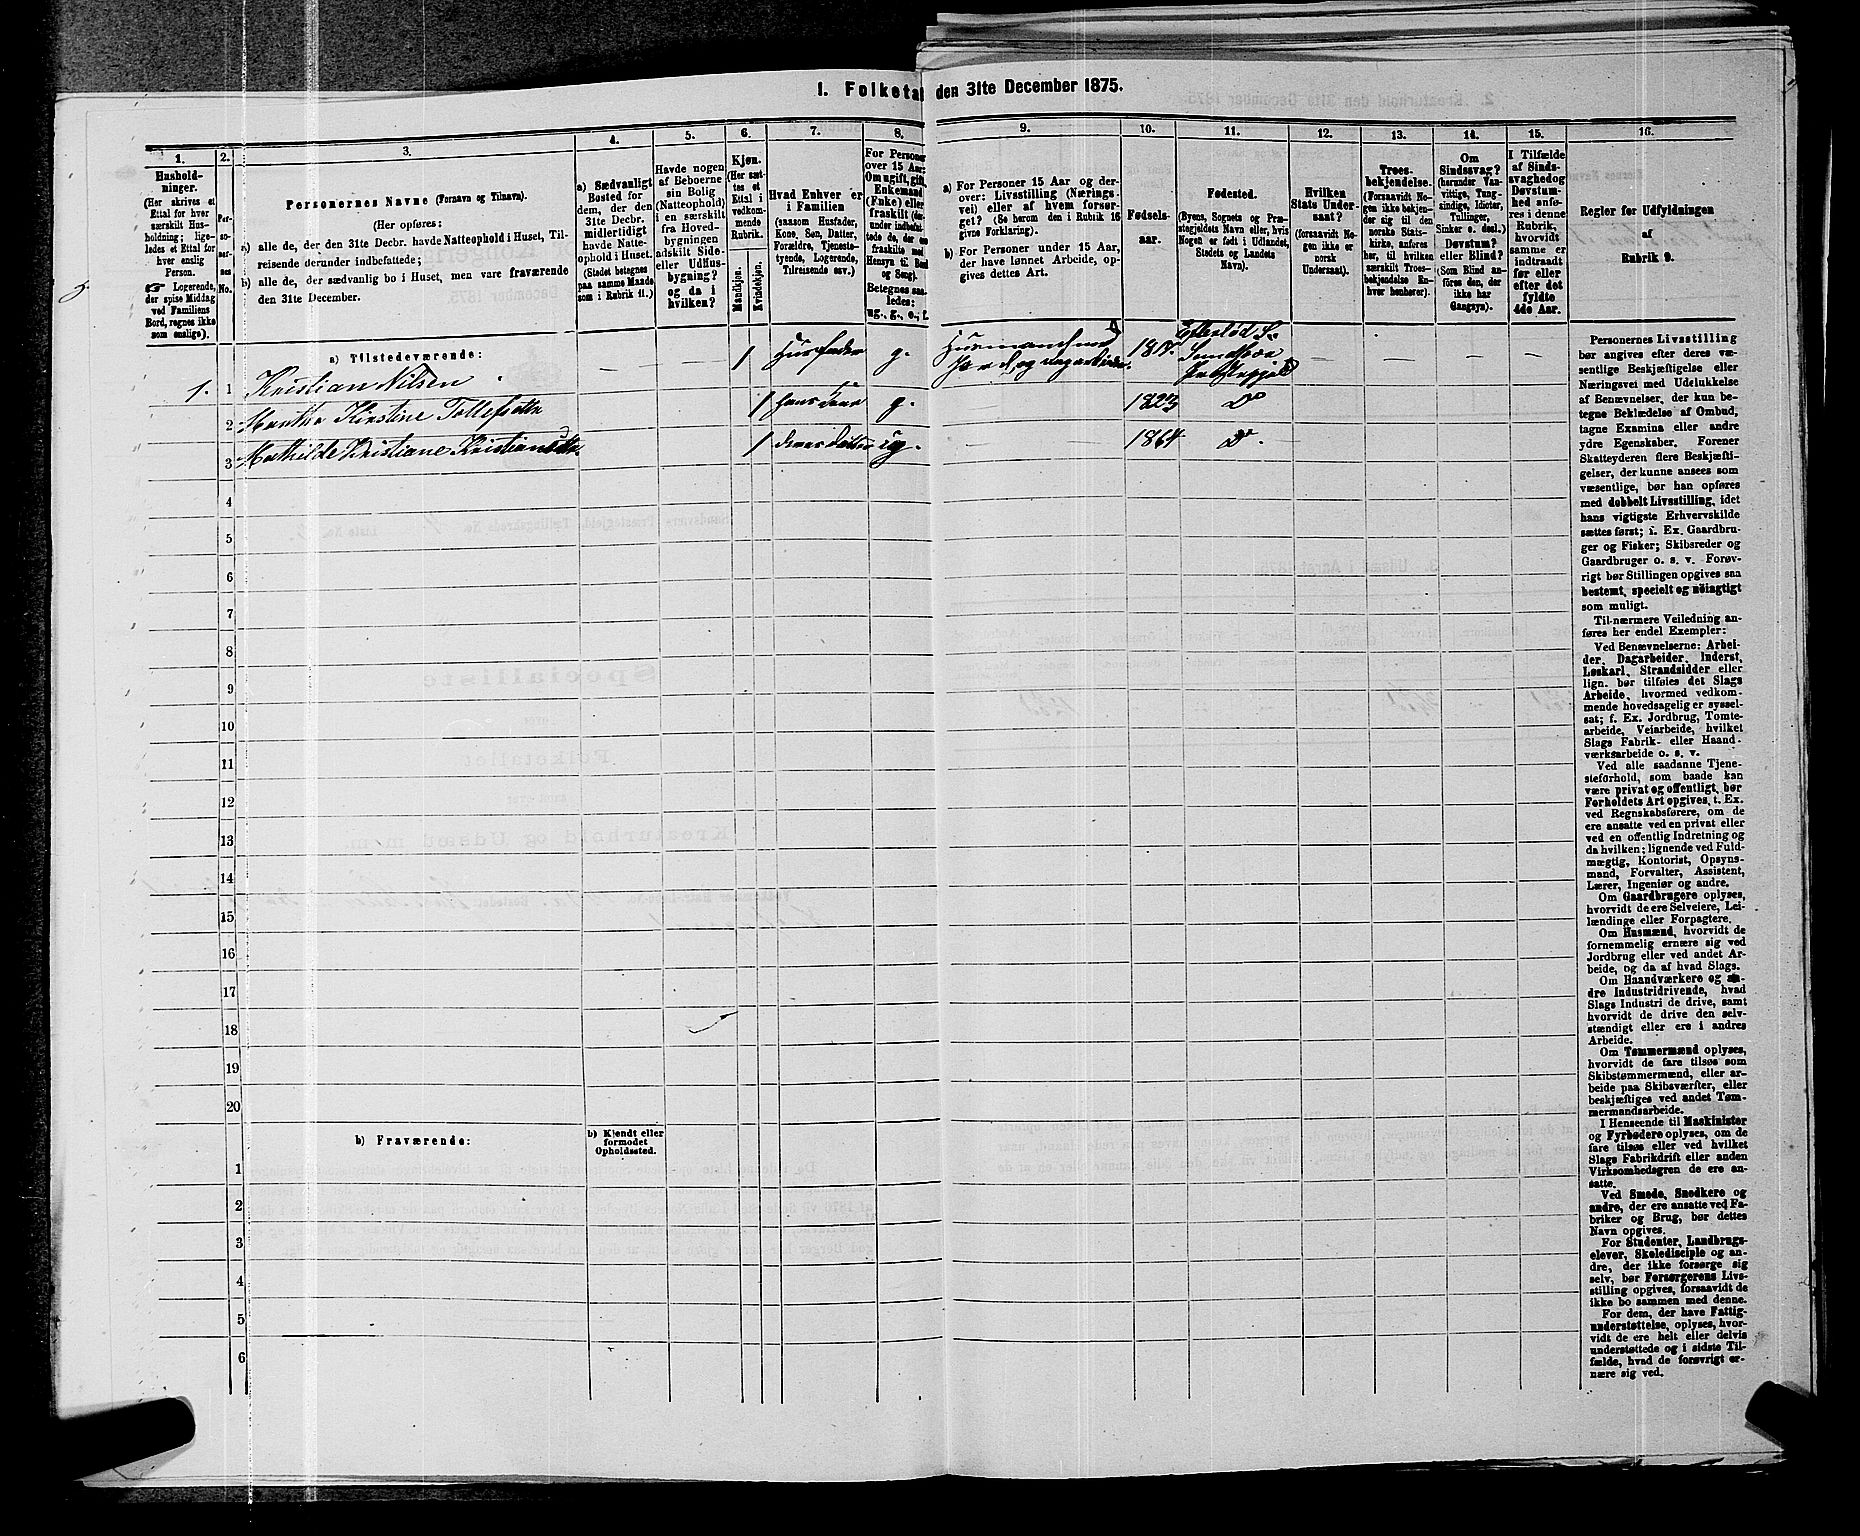 1. Folketal den 31te December 1875.
1.
Husholdninger.
(Her skrives et
Ettal for hver
særskilt Husholdning;
ligeledes et Ettal for
hver enslig
Person.
☞ Logerende,
der spise Middag
ved Familiens
Bord, regnes ikke
som enslige).
2.
Personernes
No.
3.
Personernes Navne (Fornavn og Tilnavn).
(Her opføres:
a) alle de, der den 31te Decbr. havde Natteophold i Huset, Tilreisende derunder indbefattede;
b) alle de, der sædvanlig bo i Huset, men vare fraværende
den 31te December.
4.
a) Sædvanligt
Bosted for
dem, der den
31te Decbr.
midlertidigt
havde Natteophold i Huset.
(Stedet betegnes
paa samme Maade
som i Rubrik 11.)
5.
Havde nogen
af Beboerne
sin Bolig
(Natteophold)
i en særskilt
fra Hovedbygningen
adskilt Side-
eller Udhusbygning?
og da i
hvilken?
6.
Kjøn.
(Her sættes et
Ettal i
vedkommende
Rubrik.
Mandkjøn.
Kvindekjøn.
7.
Hvad Enhver er
i Familien
(saasom Husfader,
Kone, Søn, Datter,
Forældre, Tjenestetyende, Logerende,
Tilreisende osv.)
8.
For Personer
over 15 Aar:
Om ugift, gift,
Enkemand
(Enke) eller
fraskilt
Betegnes saaledes:
ug., g., e., f.
9.
a) For Personer 15 Aar og derover: Livsstilling (Næringsvei) eller af hvem forsørget? (Se herom den i Rubrik 16
givne Forklaring).
b) For Personer under 15 Aar,
der have lønnet Arbeide, opgives dettes Art.
10.
Fødselsaar.
11.
Fødested.
(Byens, Sognets og Præstegjeldets Navn eller, hvis
Nogen er født i Udlandet,
Stedets og Landets
Navn).
12.
Hvilken
Stats Undersaat?
(forsaavidt Nogen ikke er
norsk
Undersaat).
13.
Troesbekjendelse.
(Forsaavidt Nogen ikke bekjender sig til den
norske Statskirke, anføres
her, til hvilken
særskilt Troesbekjendelse Enhver henhører).
14.
Om
Sindssvag?
(herunder Vanvittige, Tungsindige, Idioter,
Tullinger,
Sinker o. desl.)
Døvstum?
eller Blind?
(Som Blind anføres den, der
ikke har
Gangsyn).
15.
I Tilfælde
af Sindssvaghed og
Døvstumhed anføres i denne
Rubrik,
hvorvidt
samme er
indtraadt
før eller
efter det
fyldte
4de Aar.
16.
Regler for Udfyldningen
af
Rubrik 9.
a) Tilstedeværende:
1. 1 Kristian Nilsen 1 Husfader g. Husmand med Jord og Dagarbeider. Eftelød S. Sandsvær Præstegjeld
2 Martha Kirstine Tollefsdtr 1 hans Kone g. 1823 Do
3 Mathilde Kristiane Kristiansdtr. 1 deres Datter ug. 1864 Do.
4
5
6
7
8
9
10
11
12
13
14
15
16
17
18
19
20
b) Fraværende:
b) Kjendt eller
formodet
Opholdssted.
1
2
3
4
5
6
Personernes Livsstilling
bør angives efter deres væsentlige Beskjæftigelse eller
Næringsvei med Udelukkelse
af Benævnelser, der kun betegne Beklædelse af Ombud,
tagne Examina eller andre
ydre Egenskaber. Forener
Skatteyderen flere Beskjæftigelser, der kunne ansees som
væsentlige, bør han opføres
med dobbelt Livsstilling, idet
hans vigtigste Erhvervskilde
sættes først; i. Ex. Gaardbruger og Fisker; Skibsreder og
Gaardbruger o. s. v. Forøvrigt bør Stillingen opgives saa
bestemt, specielt og nöiagtigt
som muligt.
Til nærmere Veiledning anføres her endel Exempler:
Ved Benævnelserne: Arbeider, Dagarbeider, Inderst,
Løskarl, Strandsidder eller
lign. bør tilføies det Slags
Arbeide, hvormed vedkommende hovedsagelig er sysselsat; f. Ex. Jordbrug, Tomtearbeide, Veiarbeide, hvilket
Slags Fabrik- eller Haandværksarbeide o. s. v.
Ved alle saadanne Tjenesteforhold, som baade kan
være privat og offentligt, bør
Forholdets Art opgives, t. Ex.
ved Regnskabsførere, om de
ere ansatte ved en privat eller
ved en offentlig Indretning og
da hvilken; lignende ved Fuldmægtig, Kontorist, Opsynsmand, Forvalter, Assistent,
Lærer, Ingeniør og andre.
Om Gaardbrugere oplyses,
hvorvidt de ere Selveiere, Leilændinge eller Forpagtere.
Om Husmænd, hvorvidt de
fornemmelig ernære sig ved
Jordbrug eller ved andet Arbeide, og da af hvad Slags.
Om Haandværkere og andre Industridrivende, hvad
Slags Industri de drive, samt
hvorvidt de drive den selvstændigt eller ere i andres
Arbeide.
Om Tømmermænd oplyses,
hvorvidt de fare tilsøs som
Skibstømmermænd, eller arbeide paa Skibsværfter, eller
beskjæftiges ved andet Tømmermandsarbeide.
I Henseende til Maskinister
og Fyrbødere oplyses, om de
fare tilsøs eller ved hvilket
Slags Fabrikdrift eller anden
Virksomhedsgren de ere ansatte.
Ved Smede, Snedkere og
andre, der ere ansatte ved Fabriker og Brug, bør dettes
Navn opgives.
For Studenter, Landbrugselever, Skoledisciple og andre, der ikke forsørge sig
selv, bør Forsørgerens Livsstilling opgives, forsaavidt de
ikke bo sammen med denne.
For dem, der have Fattigunderstøttelse, oplyses, hvorvidt de ere helt eller delvis
understøttede og i sidste Tilfælde, hvad de forøvrigt ernære sig ved.